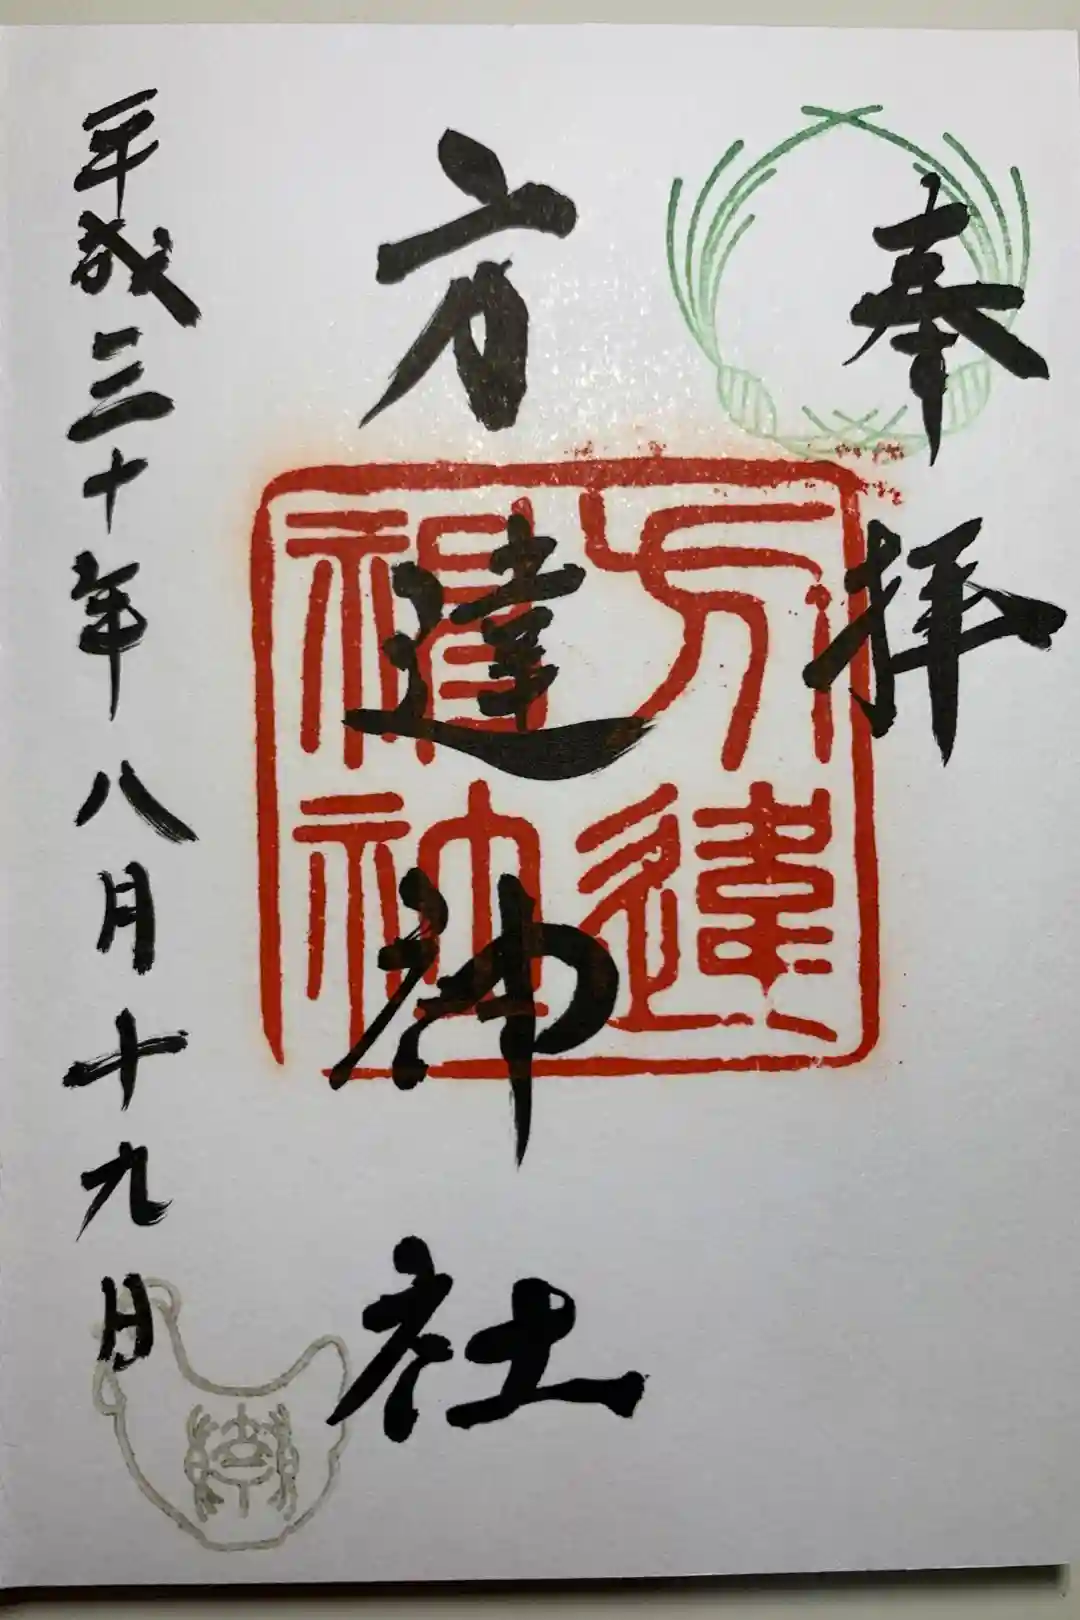 奉拝
方違神社
平成三十年八月十九日
方違
禃神